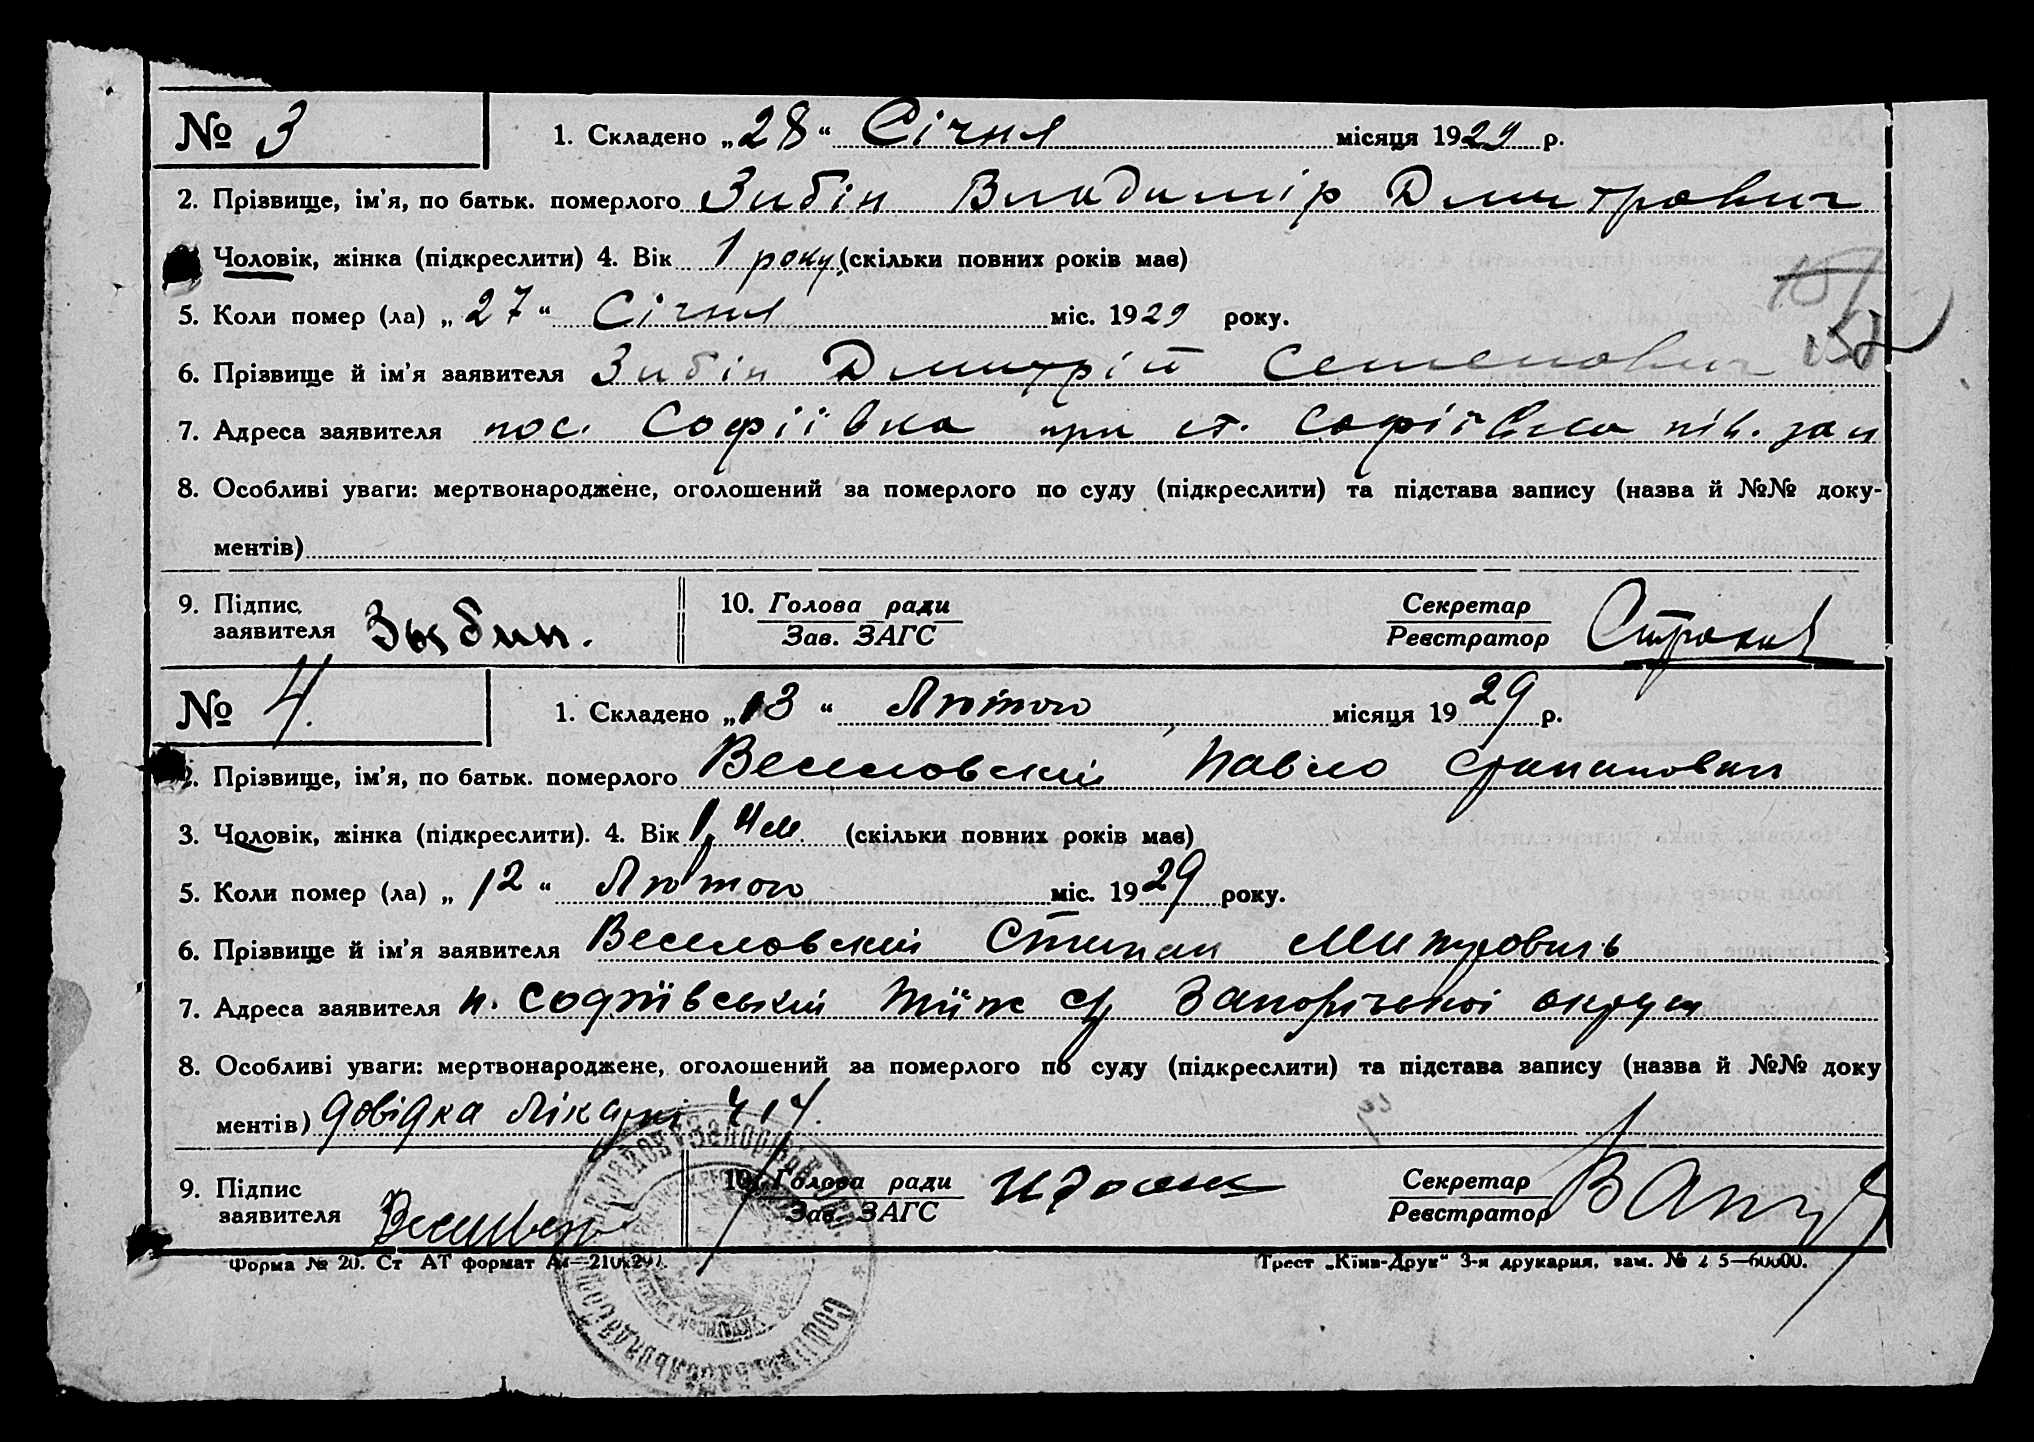 № 3 1. Складено „28“ Січня місяця 1929 р.
2. Прізвище, ім'я, по батьк. померлого Зибін Владимір Дмитрович
Чоловік, жінка (підкреслити) 4. Вік 1 року (скільки повних років має)
5. Коли помер (ла) „27“ Січня міс. 1929 року.
6. Прізвище й ім'я заявителя Зибін Дмитрій Семенович
7. Адреса заявителя пос. Софіївка при ст. Софіївка пів. зал
8. Особливі уваги: мертвонароджене, оголошений за померлого по суду (підкреслити) та підстава запису (назва й №№ доку-
ментів)
9. Підпис 10. Голова ради Секретар
заявителя Зыбин. Зав. ЗАГС Реєстратор
№ 4. 1. Складено „13“ Лютого місяця 1929 р.
2. Прізвище, ім'я, по батьк. померлого Веселовский Павло
3. Чоловік, жінка (підкреслити). 4. Вік (скільки повних років має)
5. Коли помер (ла) „12“ Лютого міс. 1929 року.
6. Прізвище й ім'я заявителя Веселовский Степан
7. Адреса заявителя Запорічької округи
8. Особливі уваги: мертвонароджене, оголошений за померлого по суду (підкреслити) та підстава запису (назва й №№ доку
ментів) довідка лікарні
9. Підпис 10. Голова ради Секретар
заявителя Зав. ЗАГС Реєстратор
Форма № 20. Ст АТ формат А4—210х297. Трест „Київ-Друк“ 3-я друкарня, зам. №